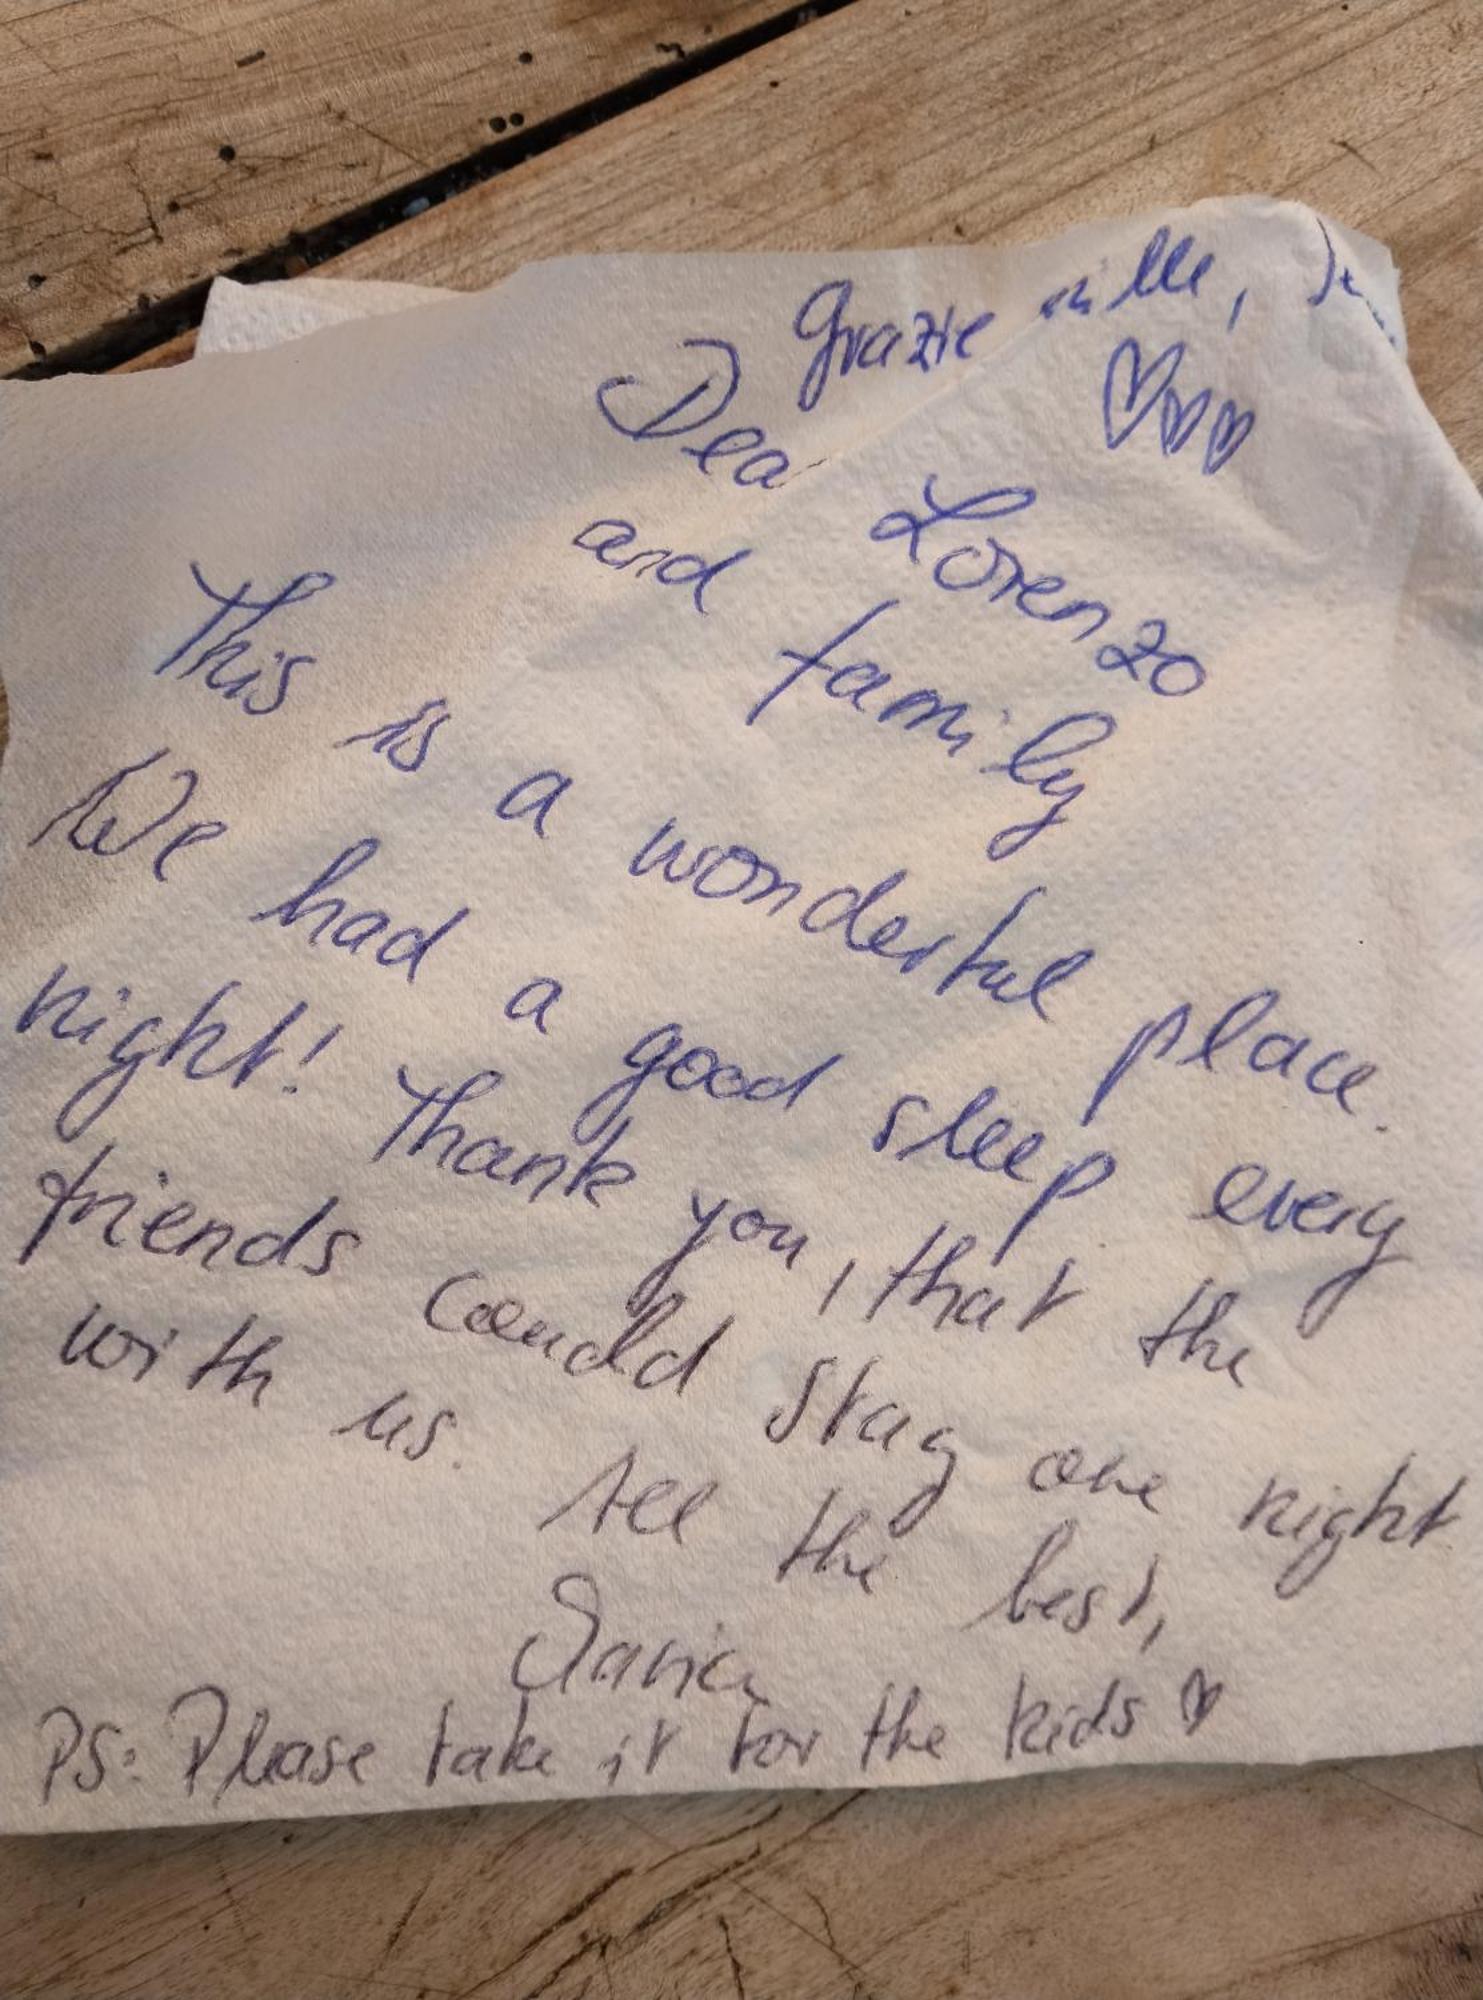 Grazie mille,
Dear Lorenzo
and family
This is a wonderful place.
We had a good sleep every
night! Thank you, that the
friends could stay one night
with us.
All the best,
PS: Please take it for the kids ♥